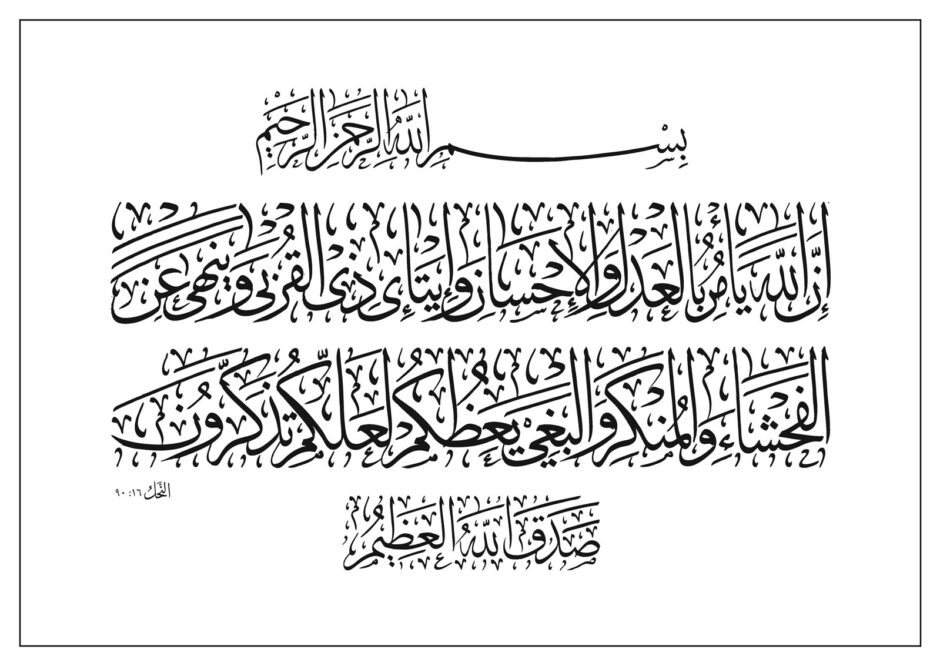 بِسْمِ اللَّهِ الرَّحْمَٰنِ الرَّحِيْمِ
إِنَّ اللَّهَ يَأْمُرُ بِالْعَدْلِ وَالْإِحْسَانِ وَإِيتَائِ ذِي الْقُرْبَى وَيَنْهَى عَنِ
الْفَحْشَاءِ وَالْمُنْكَرِ وَالْبَغْيِ يَعِظُكُمْ لَعَلَّكُمْ تَذَكَّرُونَ
النَّحْلُ ١٦: ٩٠
صَدَقَ اللَّهُ الْعَظِيمُ